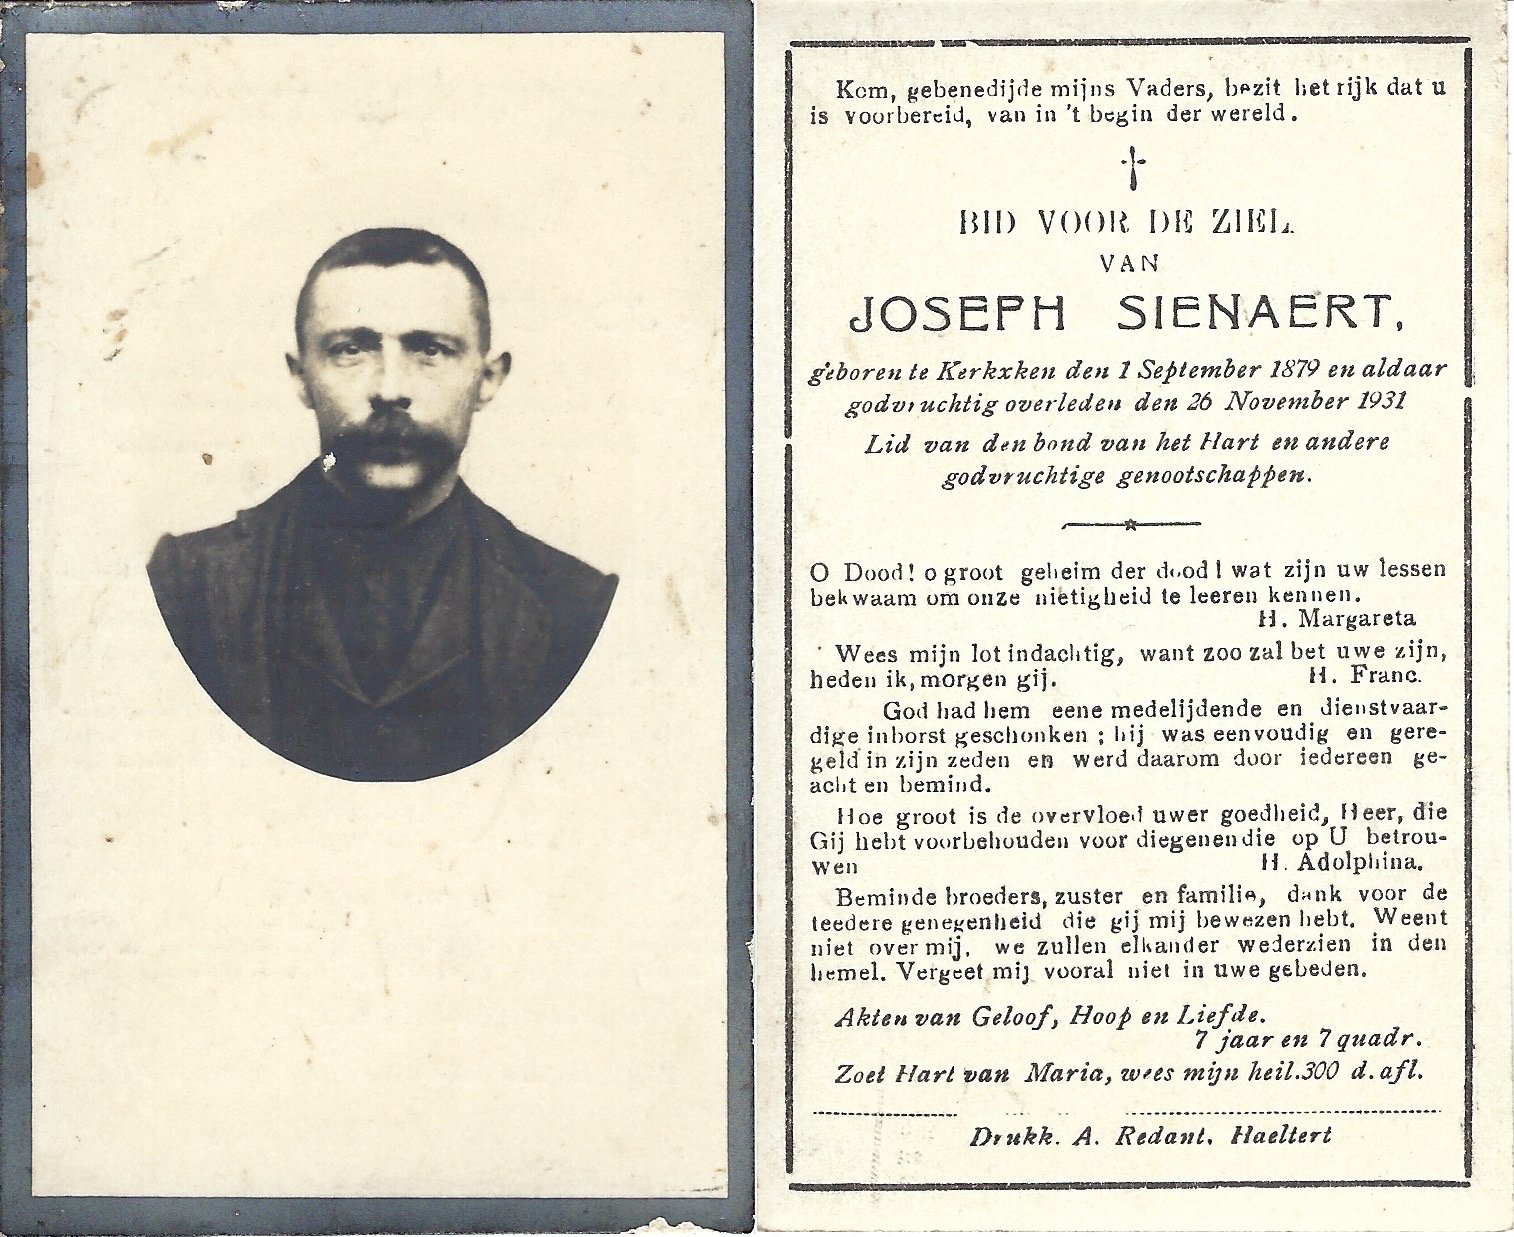 Kom, gebenedijde mijns Vaders, bezit het rijk dat u
is voorbereid, van in 't begin der wereld.
BID VOOR DE ZIEL
VAN
JOSEPH SIENAERT,
geboren te Kerkxken den 1 September 1879 en aldaar
godvruchtig overleden den 26 November 1931
Lid van den bond van het Hart en andere
godvruchtige genootschappen.
O Dood! o groot geheim der dood! wat zijn uw lessen
bekwaam om onze nietigheid te leeren kennen.
H. Margareta
Wees mijn lot indachtig, want zoo zal het uwe zijn,
heden ik, morgen gij. H. Franc.
God had hem eene medelijdende en dienstvaar-
dige inborst geschonken ; hij was eenvoudig en gere-
geld in zijn zeden en werd daarom door iedereen ge-
acht en bemind.
Hoe groot is de overvloed uwer goedheid, Heer, die
Gij hebt voorbehouden voor diegenen die op U betrou-
wen H. Adolphina.
Beminde broeders, zuster en familie, dank voor de
teedere genegenheid die gij mij bewezen hebt. Weent
niet over mij, we zullen elkander wederzien in den
hemel. Vergeet mij vooral niet in uwe gebeden.
Akten van Geloof, Hoop en Liefde.
7 jaar en 7 quadr.
Zoet Hart van Maria, wees mijn heil. 300 d. afl.
Drukk. A. Redant. Haeltert